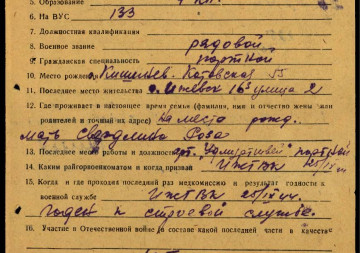 5. Образование 4 кл.
6. На ВУС 133
7. Должностная квалификация
8. Военное звание рядовой
9. Гражданская специальность портной
10. Место рождения Кишинев. Котовская 55
11. Последнее место жительства г. Ижевск 16 улица 21
12. Где проживает в настоящее время семья (фамилия, имя и отчество жены или
родителей и точный их адрес) на места рожд.
мать Роза
13. Последнее место работы и должность портной
14. Каким райгорвоенкоматом и когда призван ИжГВК 25/IX
15. Когда и где проходил последний раз медкомиссию и результат годности к
военной службе ИжГВК 25/IX
годен к строевой службе.
16. Участие в Отечественной войне (в составе какой последней части в качестве